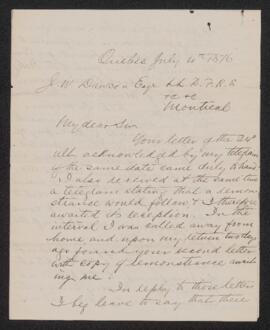 Quebec July 4th 1876
J. W. Dawson Esqr LL.D. F.R.S
&c &c
Montreal
My dear Sir
Your letter of the 24th
ult. acknowledged by my telegram
of the same date came duly to hand
I also received at the same time
a telegram stating that a demon-
strance would follow & I therefore
awaited its reception. In the
interval I was called away from
home and upon my return two days
ago found your second letter
with copy of demonstrance await-
ing me.
In reply to these letters
I beg leave to say that there